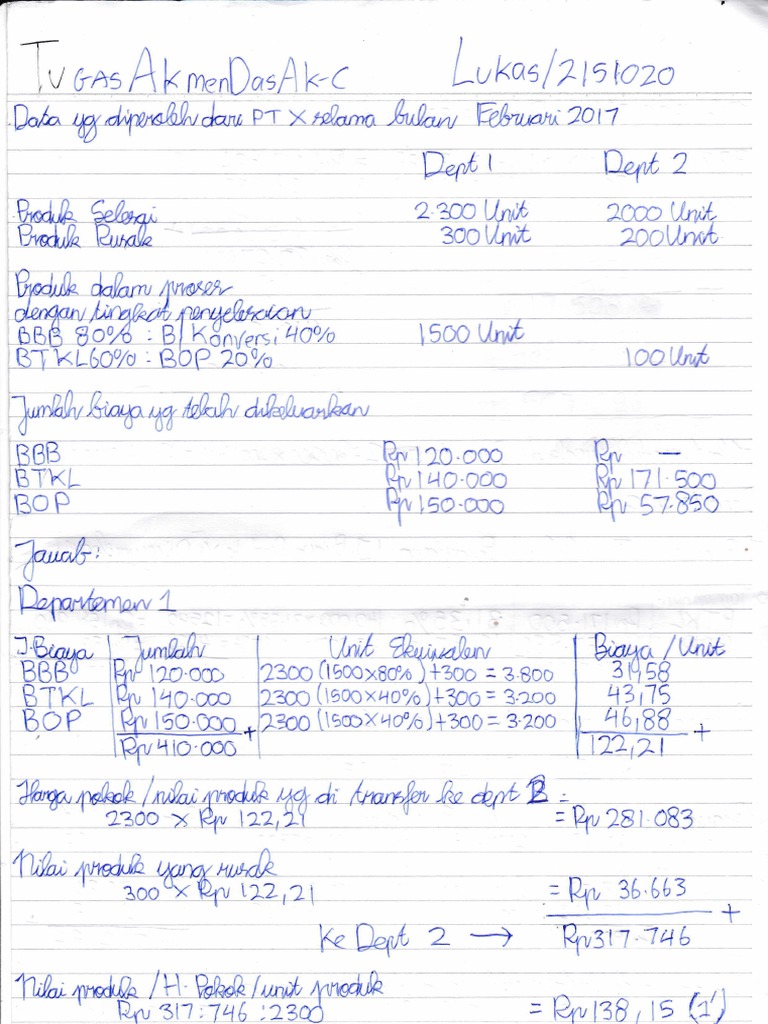 TUGAS AkmenDasAk-C Lukas/2151020
Data yg diperoleh dari PT X selama bulan Februari 2017
Dept 1 Dept 2
Produk Selesai 2.300 Unit 2000 Unit
Produk Rusak 300 Unit 200 Unit
Produk dalam proses
dengan tingkat penyelesaian
BBB 80% : B/Konversi 40% 1500 Unit
BTKL 60% : BOP 20% 100 Unit
Jumlah biaya yg telah dikeluarkan
BBB Rp 120.000 Rp —
BTKL Rp 140.000 Rp 171.500
BOP Rp 150.000 Rp 57.850
Jawab:
Departemen 1
J.Biaya Jumlah Unit Ekuivalen Biaya/Unit
BBB Rp 120.000 2300 (1500x80%)+300 = 3.800 31,58
BTKL Rp 140.000 2300 (1500x40%)+300 = 3.200 43,75
BOP Rp 150.000 + 2300 (1500x40%)+300 = 3.200 46,88 +
Rp 410.000 122,21
Harga pokok/nilai produk yg di transfer ke dept 2 =
2300 x Rp 122,21 = Rp 281.083
Nilai produk yang rusak
300 x Rp 122,21 = Rp 36.663 +
Ke Dept 2 → Rp 317.746
Nilai produk/H. Pokok/unit produk
Rp 317.746 : 2300 = Rp 138,15 (1')